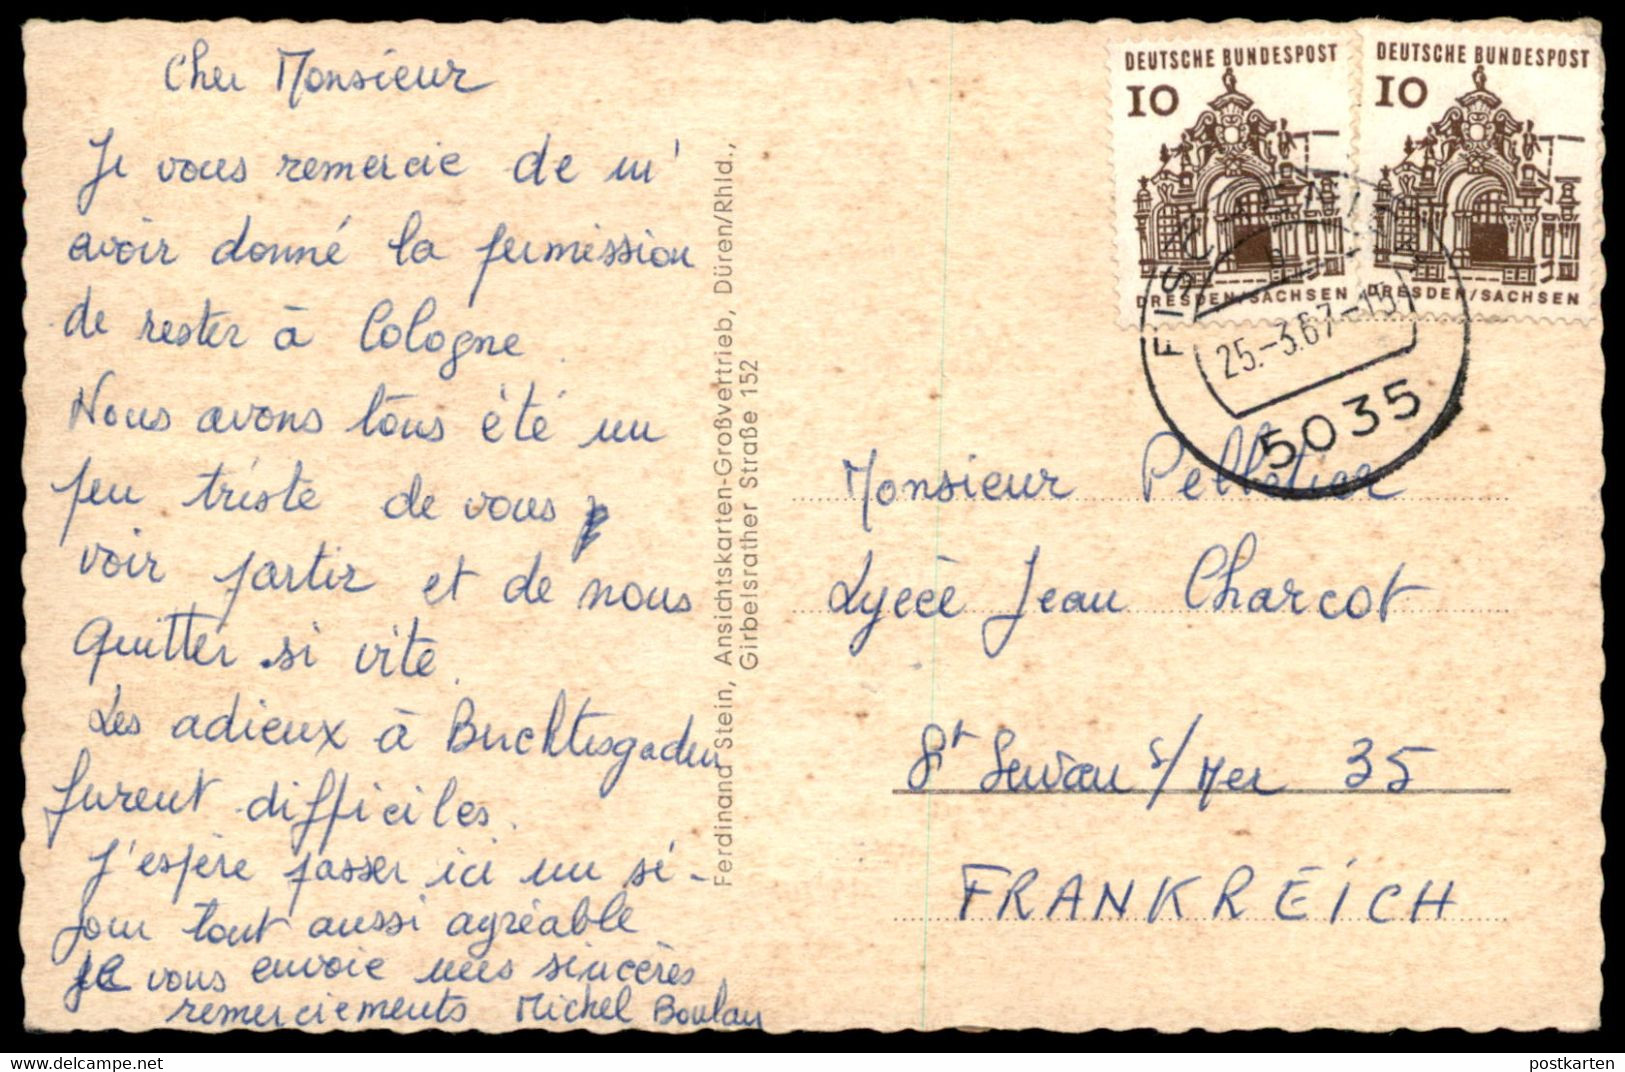 Cher Monsieur
Je vous remercie de m'
avoir donné la permission
de rester à Cologne.
Nous avons tous été un
peu triste de vous
voir partir et de nous
quitter si vite.
Les adieux à Berchtesgaden
furent difficiles.
J'espère passer ici un sé-
jour tout aussi agréable
Je vous envoie mes sincères
remerciements Michel Boulay
Ferdinand Stein, Ansichtskarten-Großvertrieb, Düren/Rhld.,
Girbelsrather Straße 152
DEUTSCHE BUNDESPOST
10
DRESDEN/SACHSEN
DEUTSCHE BUNDESPOST
10
DRESDEN/SACHSEN
25.-3.67-19
5035
Monsieur Pelletier
Lycée Jean Charcot
St Servan s/Mer 35
FRANKREICH
postkarten